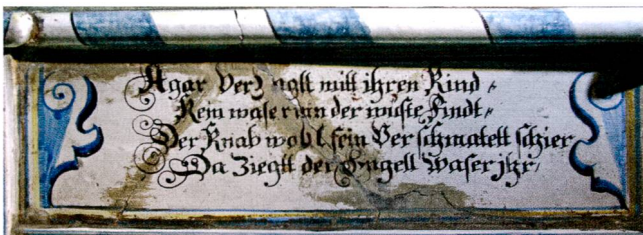 Agar Verzagtt mitt ihren Kind
Kein waser inn der wüste findt
Der Knab wohl sein Verschmatett schier
Da Ziegtt der Engell Waser jhr